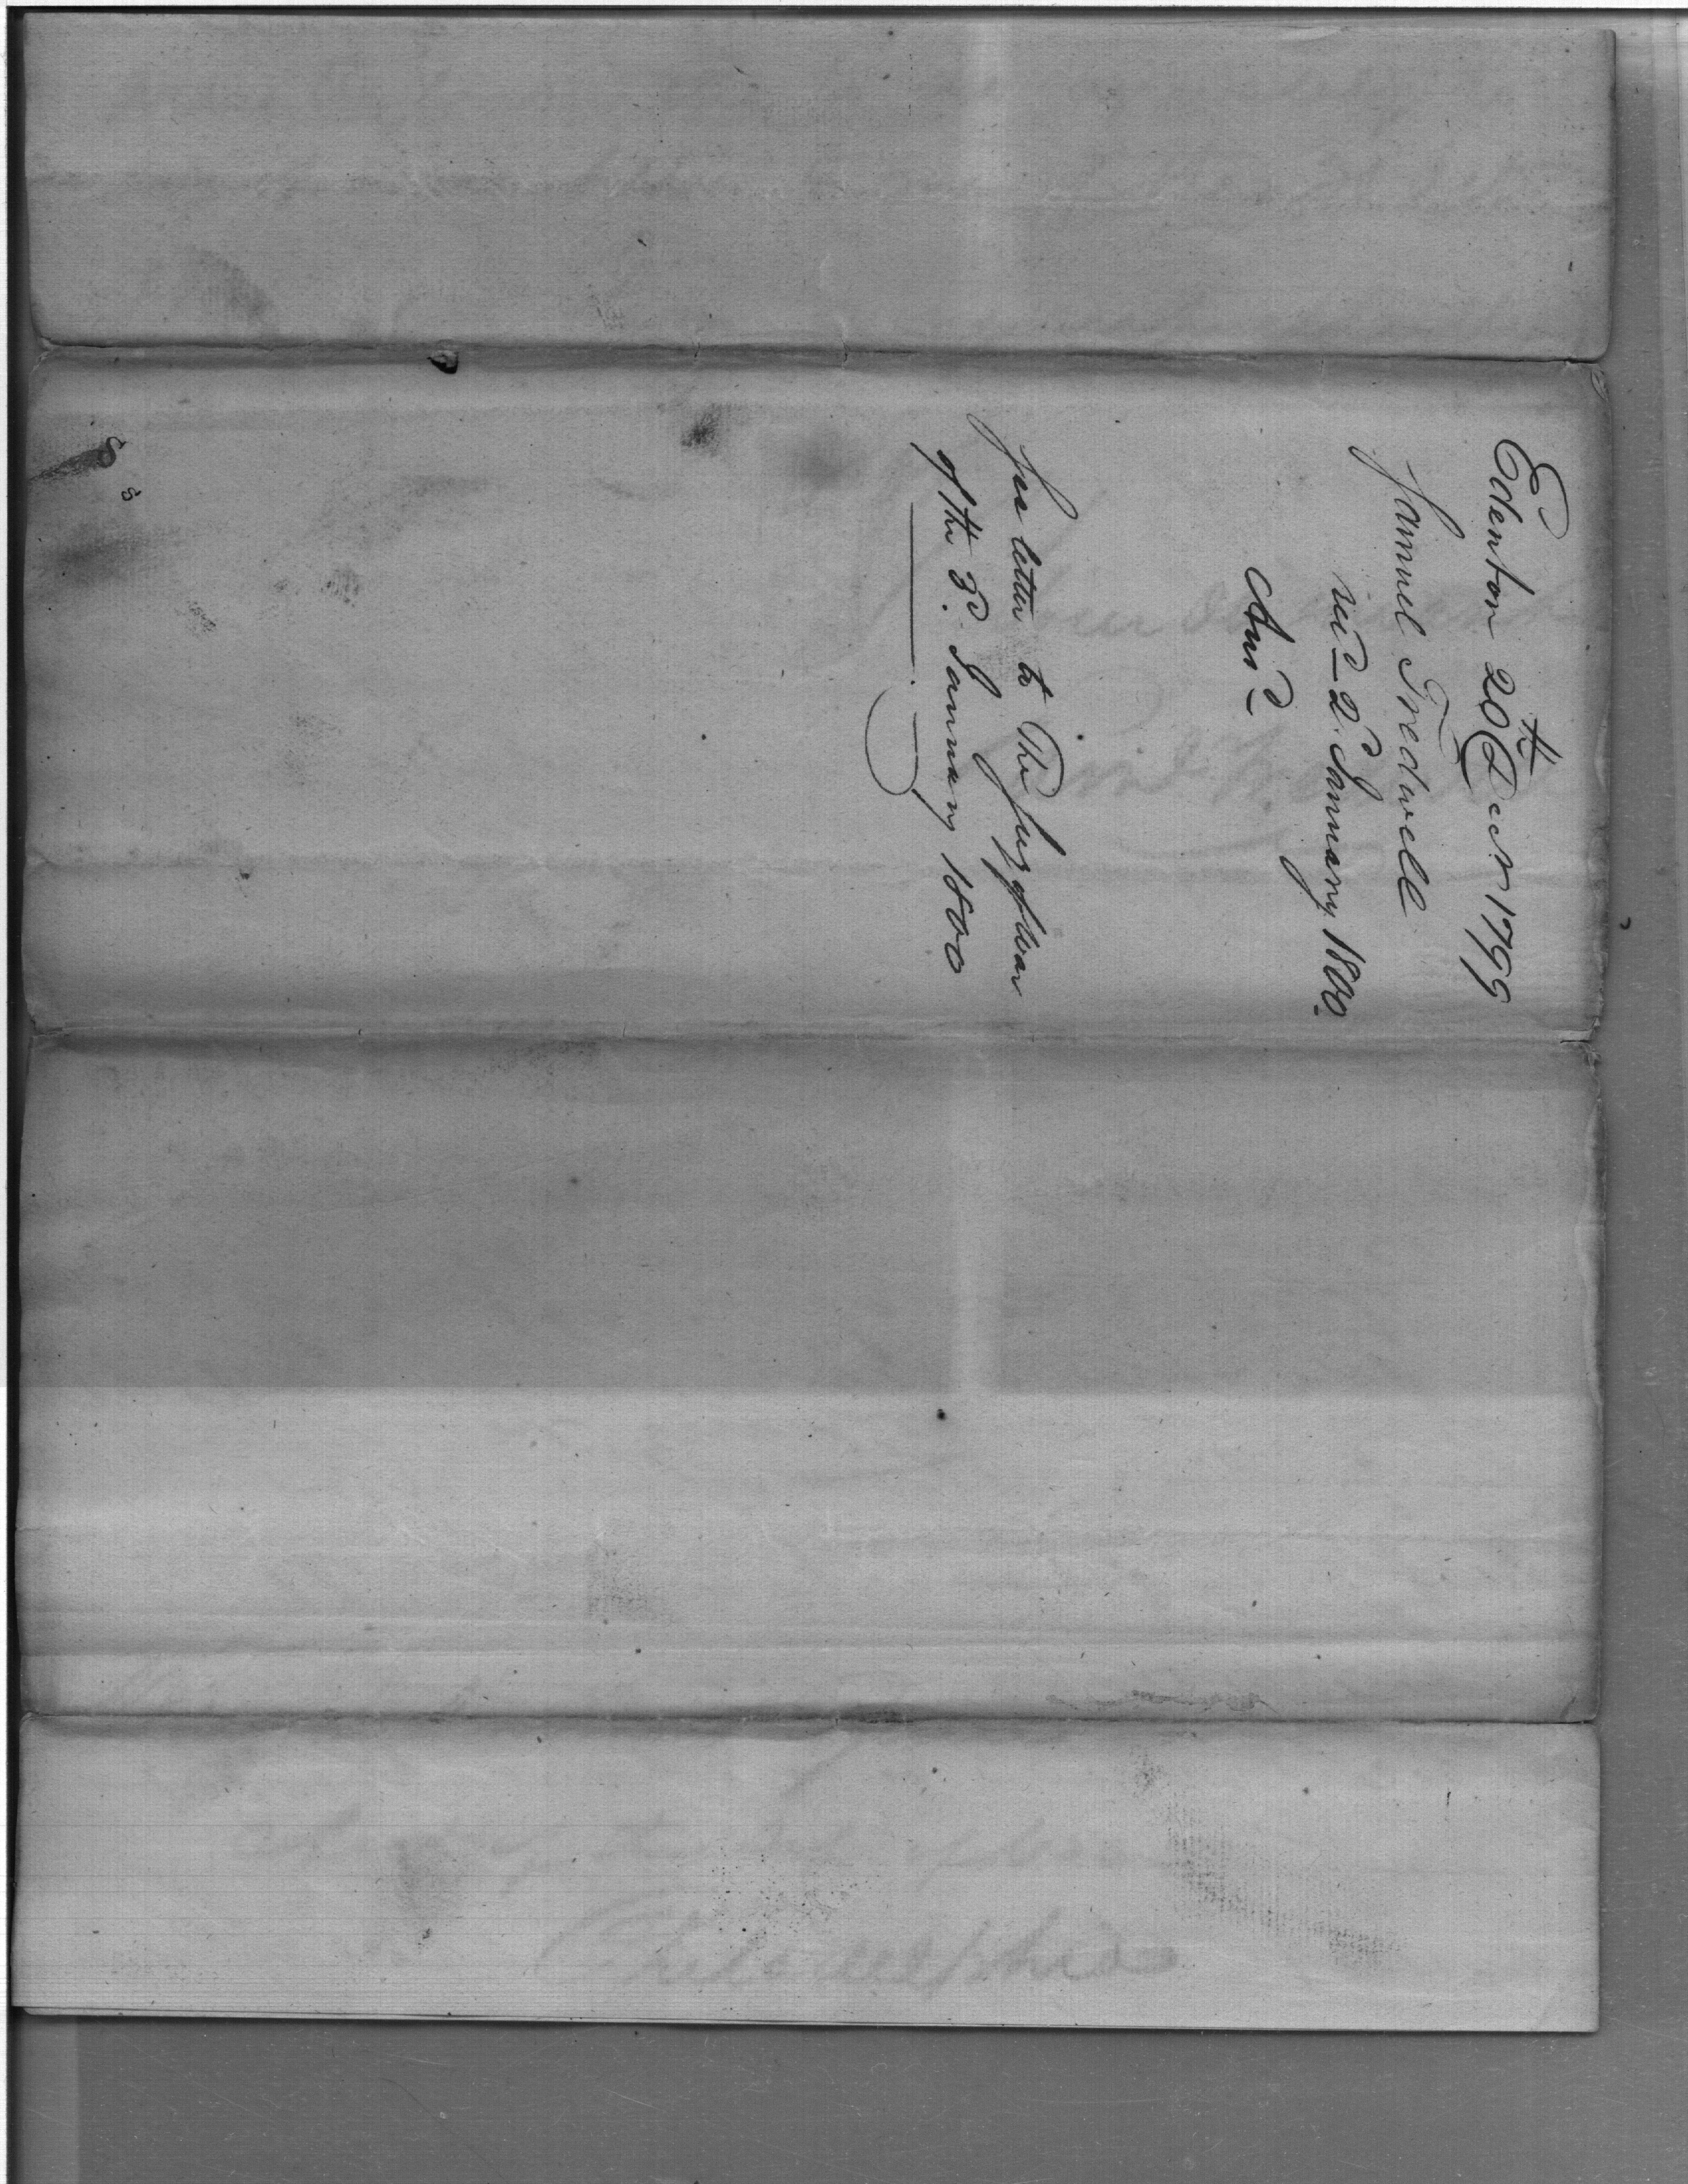 Edenton 20th Decr 1799
Samuel Tredwell
recd 2d January 1800.
Ansd
See letter to The Secy of War
of the 3d January 1800
Philadelphia